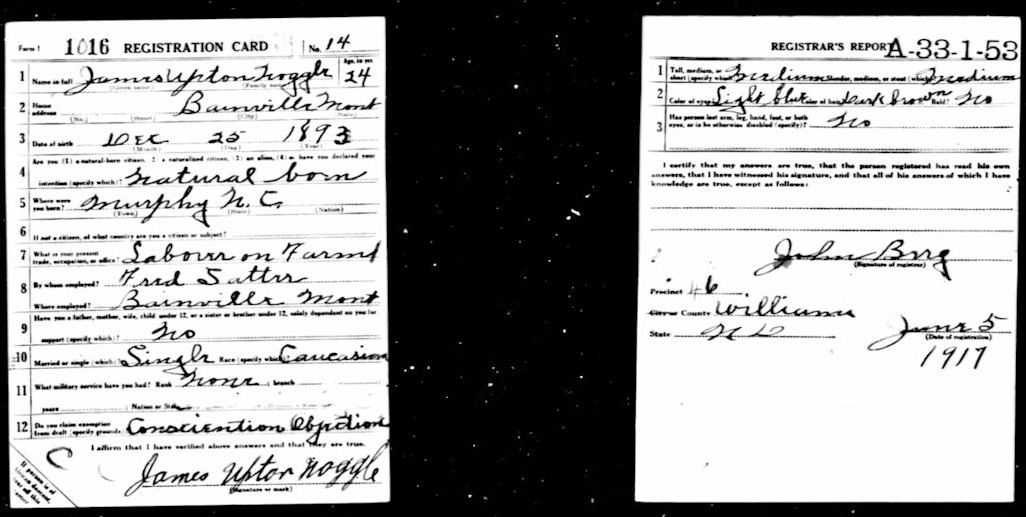 Form 1 1016 REGISTRATION CARD No. 14
1 Name in full James Upton Noggle Age, in yrs 24
(Given name) (Family name)
2 Home address Bainville Mont
(No.) (Street) (City) (State)
3 Date of birth Dec 25 1893
(Month) (Day) (Year)
Are you (1) a natural-born citizen, 2 a naturalized citizen, (3) an alien, (4) or have you declared your
4 intention (specify which)? Natural born
5 Where were you born? Murphy N. C.
(Town) (State) (Nation)
6 If not a citizen, of what country are you a citizen or subject?
7 What is your present trade, occupation, or office? Laborer on Farm
8 By whom employed? Fred Satter
Where employed? Bainville Mont
9 Have you a father, mother, wife, child under 12, or a sister or brother under 12, solely dependent on you for
support (specify which)? No
10 Married or single (which)? Single Race (specify which) Caucasion
11 What military service have you had? Rank None ; branch
years ; Nation or State
12 Do you claim exemption from draft (specify grounds) Conscention Objection
I affirm that I have verified above answers and that they are true.
James Upton Noggle
(Signature or mark)
If person is of African descent,
REGISTRAR'S REPORT A-33-1-53
1 Tall, medium, or short (specify which) Medium Slender, medium, or stout (which) Medium
2 Color of eyes Light blue Color of hair Dark brown Bald? No
3 Has person lost arm, leg, hand, foot, or both eyes, or is he otherwise disabled (specify)? No
I certify that my answers are true, that the person registered has read his own
answers, that I have witnessed his signature, and that all of his answers of which I have
knowledge are true, except as follows:
John Berg
(Signature of registrar)
Precinct 46
City or County Williams
State N D
June 5
(Date of registration)
1917